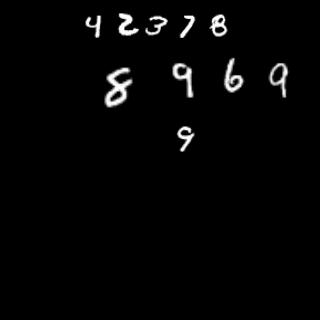 4 2 3 7 8
8 9 6 9
9